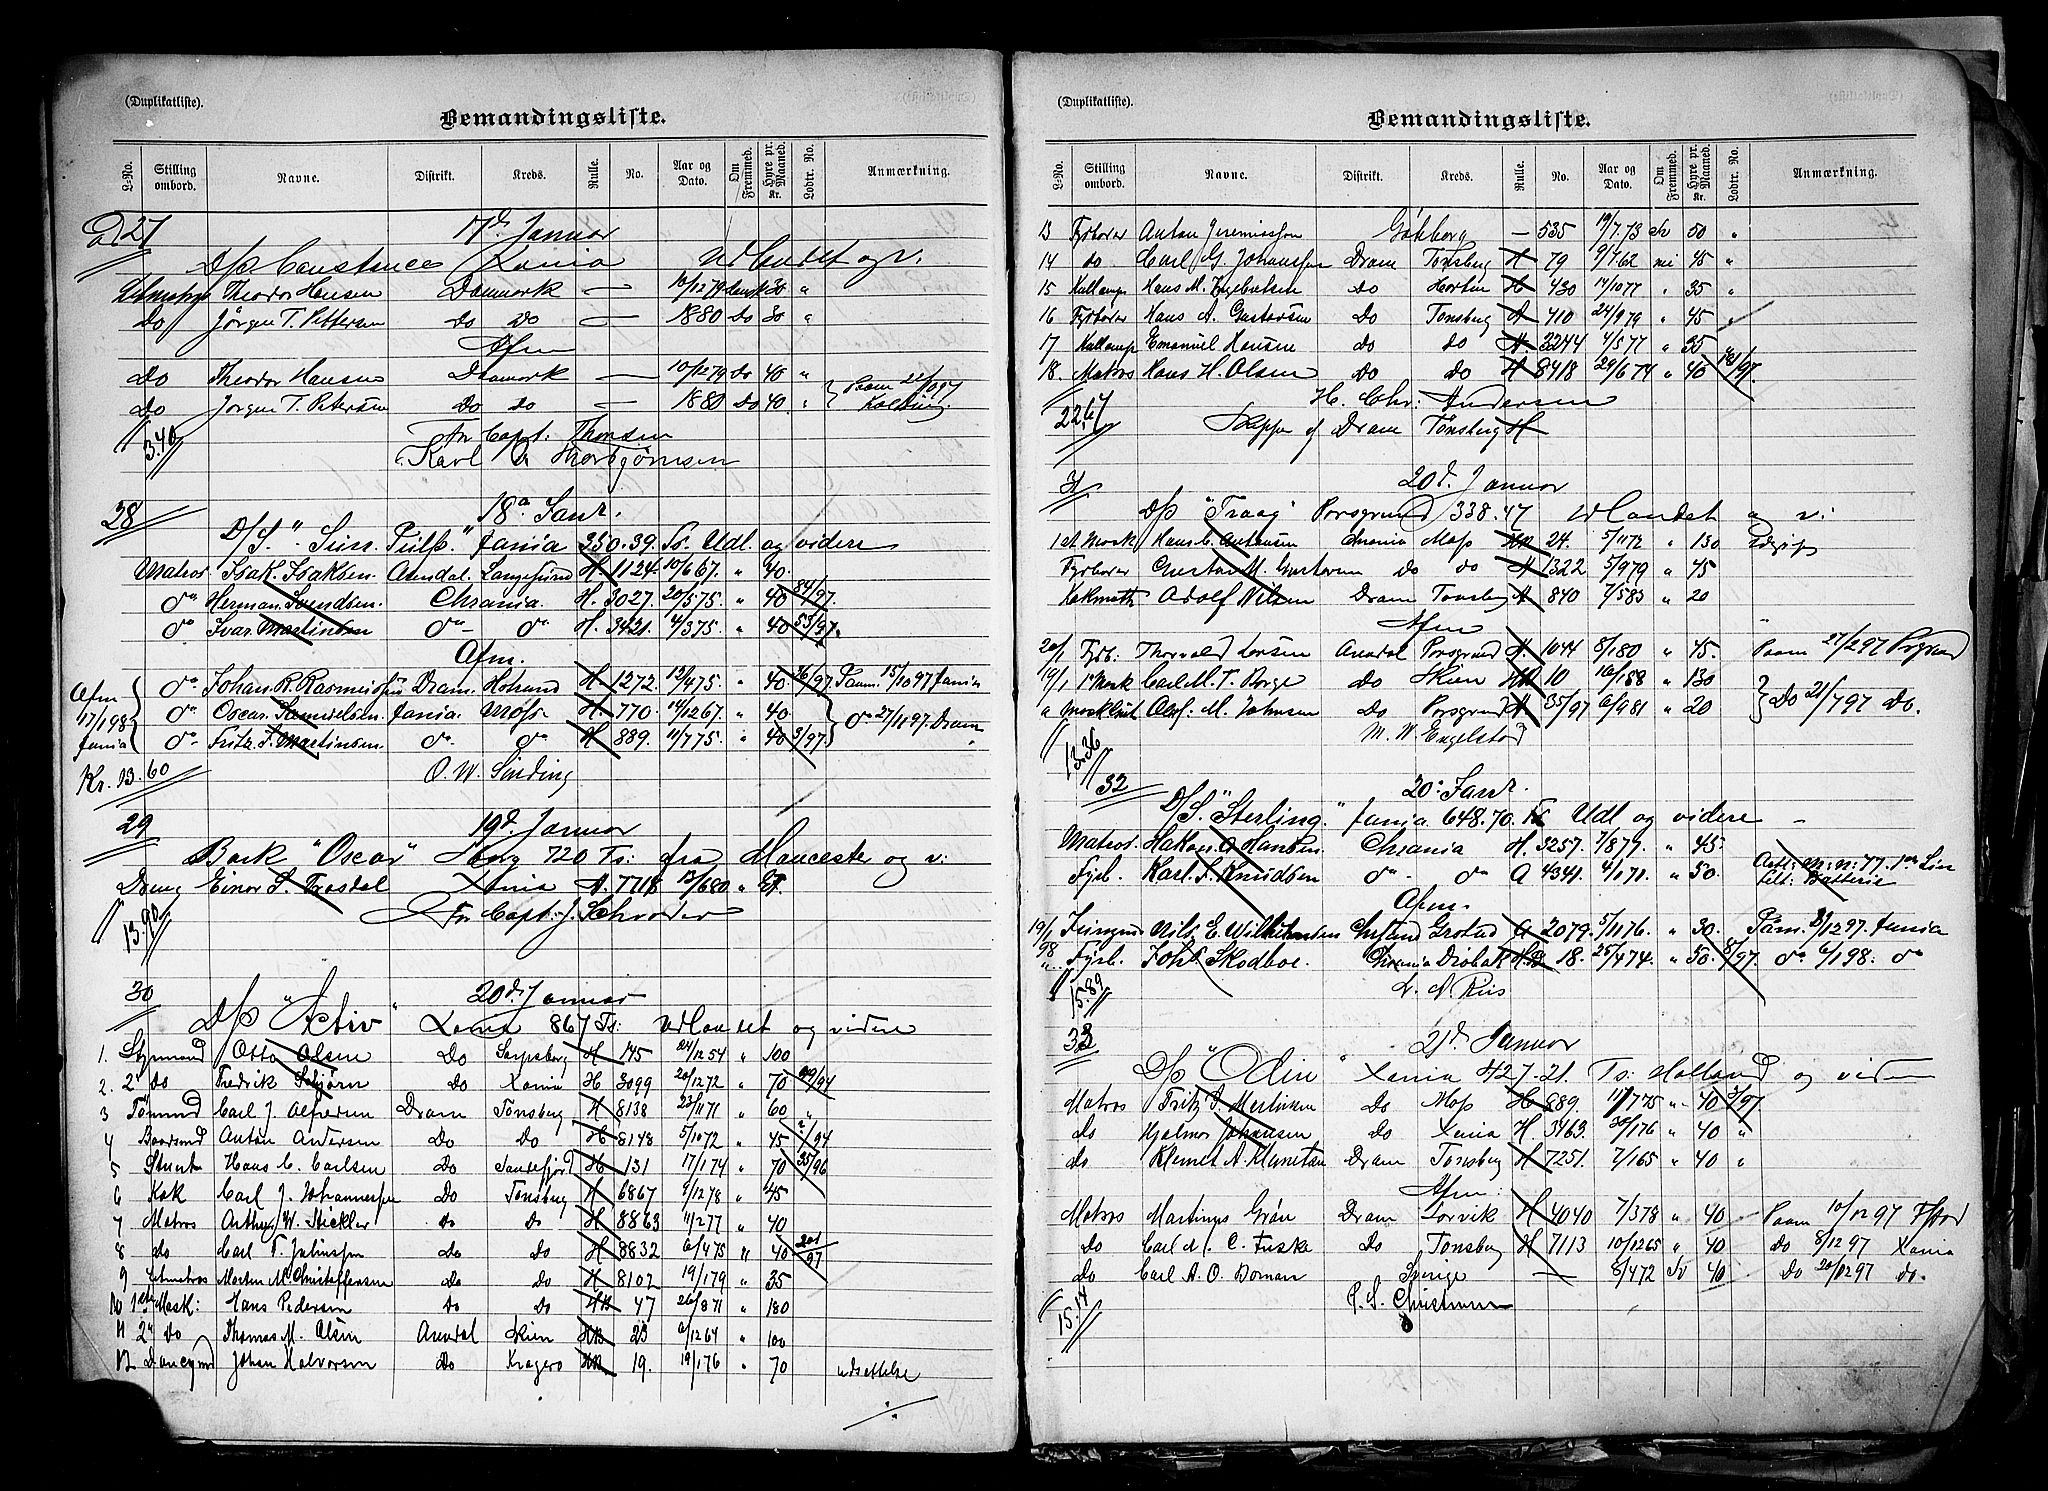 (Duplikatliste).
Bemandingsliste.
L-No. Stilling ombord. Navne. Distrikt. Kreds. Rulle. No. Aar og Dato. Om Fremmed. Hyre pr. Maaned. Kr. Lodtr. No. Anmærkning.
27 17d Januar
D/s Constance Xania Udlandet og v.
Theodor Hansen Danmark — 10/12 79 Dansk 30 "
Do Jörgen T. Pettersen Do Do — 1880 Do 30 "
Afm
Do Theodor Hansen Danmark — 10/12 79 Do 40 "
Do Jörgen T. Petersen Do Do — 1880 Do 40 "
3.40 For Capt: Thorsen
Karl Thorbjörnsen
28 18d Janr.
D/S. " Xania 350.39. Ts. Udl. og videre
Matros Isak. Isaksen. Arendal. Langesund H 1124. 10/6 67. " 40.
do Herman Svendsen. Chrania. H. 3027. 20/5 75. " 40 84/97.
do Ivar Martinsen do - do H. 3421. 4/3 75. " 40 53/97.
Afm.
Afm do Johan R. Rasmussen Dram. Holmsund H 1272. 12/4 75. " 40 36/97 Paam. 15/10 97 Xania
17/1 98 do Oscar Samuelsen. Xania. Moss. H. 770. 14/12 67. " 40. do 27/11 97. Dram
Xania do Fritz. S. Martinsen do. do H 889. 11/7 75. " 40 3/97.
Kr. 13.60 O. W. Sinding
29 19d. Januar
Bark "Oscar" 720 Ts: fra Mancester og v:
Einar S. Trosdal Xania A. 7718 13/6 80. "
13.90 For Capt: J. Schrøder
30 20d Januar
D/s "Activ" Xania 867 Ts: Udlandet og videre
1. Styrmand Otto Olsen Do Sarpsborg H 145 24/12 54 " 100
2. 2' do Fredrik Schjörn Do Xania H 3099 20/12 72 " 70 99/94
3 Tömmd Carl J. Alfredsen Dram Tonsberg H 8138 23/11 71 " 60 "
4 Baadsmd Anton Andersen Do Do H 8148 5/10 72 " 45 2/94
5 Stuert Hans C. Carlsen Do Sandefjord H 131 17/1 74 " 70 35/96
6 Kok Carl J. Johannessen Do Tonsberg H 6867 8/12 78 " 45
7 Matros Arthur W. Stickler do do H 8863 11/2 77 " 40
8 do Carl T. Johnssen do Do H 8832 6/4 75 " 40 201/97
9 Letmatros Morten M. Christoffersen do Do H 8102 19/1 79 " 35
10 1ste Mask: Hans Pedersen do Do HB 47 26/8 71 " 180
11 2" do Thomas M. Olsen Arendal Skien HB 23 6/12 64 " 100
12 Johan Halvorsen Do Kragerø HB 19. 19/1 76 " 70 udsættelse
./.
(Duplikatliste).
Bemandingsliste.
L-No. Stilling ombord. Navne. Distrikt. Kreds. Rulle. No. Aar og Dato. Om Fremmed. Hyre pr. Maaned. Kr. Lodtr. No. Anmærkning.
13 Fyrböter Anton Jeremiassen Göteborg — 535 19/7 73 50 "
14 do. Carl G. Johanssen Dram Tonsberg H 79 9/4 62 45 "
15 Kullemp Hans M. Ingebretsen do Horten H 430 14/10 77 " 35 "
16 Fyrböter Hans A. Gustavsen Do Tonsberg A 410 24/9 79 " 45 "
17 Kullemp Emanuel Hansen do do H. 3244 4/5 77 " 35 "
18. Matros Hans H. Olsen Do do H 8418 29/6 74 " 40
22.67 H. Chr: Andersen
Skipper af Dram Tönsberg H
31 20d. Januar
D/s "Traag" Porsgrund 338.47 Udlandet o. v:
1st Mask Hans C. Antonsen Chrania Moss HB 24. 5/11 72 " 130
Fyrböter Gustav M. Gustavsen do do A 1322 5/9 79 " 45
Kokmath Adolf Nilsen Dram Tonsberg A 840 7/5 83 " 20
Afm
20/1 Fyrb: Thorvald Larsen Arendal Porsgrund H. 1044 8/1 80 " 45. Paam 27/2 97 Prsgrund
19/1 1' Mask Carl M. T. Borge do Skien HB 10 10/1 88 " 130
a M. Johnsen Do Porsgrund A 35/97 6/9 81 " 20 Do 21/7 97 Do.
13.36 M. W. Engelstad
32 20d Janr.
D/S. "Sterling." Xania 648.70. Ts. Udl og videre –
Matros. Hakon O. Hansen. Chrania H. 3257. 7/8 79. " 45.
Fyrb. Karl. S. Knudsen do - do A 4341. 4/1 71. " 50.
Afm.
19/1 98 Nils. E. Wilhelmsen A 2079. 5/11 76. " 30. Paam. 8/12 97. Xania
".. Fyrb. Johs Skodboe. Chrania Dröbak HB 18. 25/4 74. " 50. 8/97. do 6/1 98: do
15.89 L. A. Riis
33 21d. Januar
D/s "Odin" Xania 427.21. Ts: Holland og videre
Matros Fritz S. Martinsen Do Moss H 889. 11/7 75 " 40 3/97
do Hjalmar Johansen do Xania H. 3463. 30/1 76 " 40 "
do Klemet A. Klemetsen Dram Tonsberg H 7251. 7/1 65 " 40 "
Afm:
Matros Martinus Grön Dram Larvik H 4040 7/3 78 " 40 Paam 10/12 97
Do Carl M. C. Fuske Do Tonsberg H 7113 10/12 65 " 40 do 8/12 97 Xania
Do Carl A. O. Boman Sverige — 8/4 72 Sv 40 Do 20/12 97 do.
15.14 P. S. Christensen